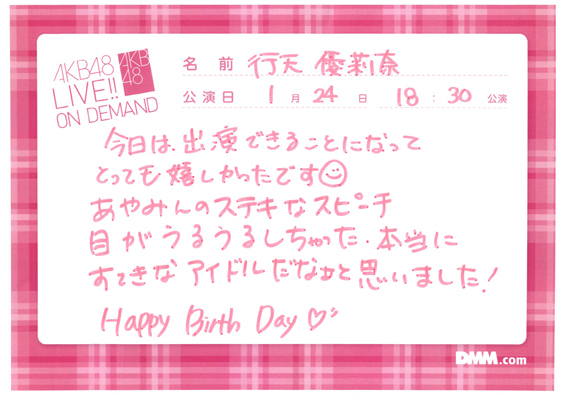 AKB48
LIVE!!
ON DEMAND
AKB
48
名前 行天 優莉奈
公演日 1月24日 18:30公演
今日は、出演できることになって
とっても嬉しかったです
あやみんのステキなスピーチ
目がうるうるしちゃった、本当に
すてきなアイドルだなぁと思いました!
Happy Birth Day ♡
DMM.com